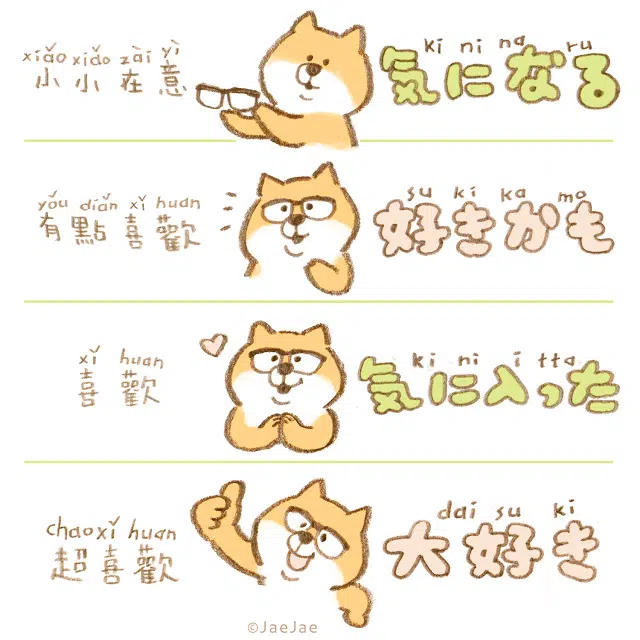 xiǎo xiǎo zài yì
小小在意
ki ni na ru
気になる
yǒu diǎn xǐ huan
有點喜歡
su ki ka mo
好きかも
xǐ huan
喜歡
ki ni i tta
気に入った
chao xǐ huan
超喜歡
dai su ki
大好き
©JaeJae